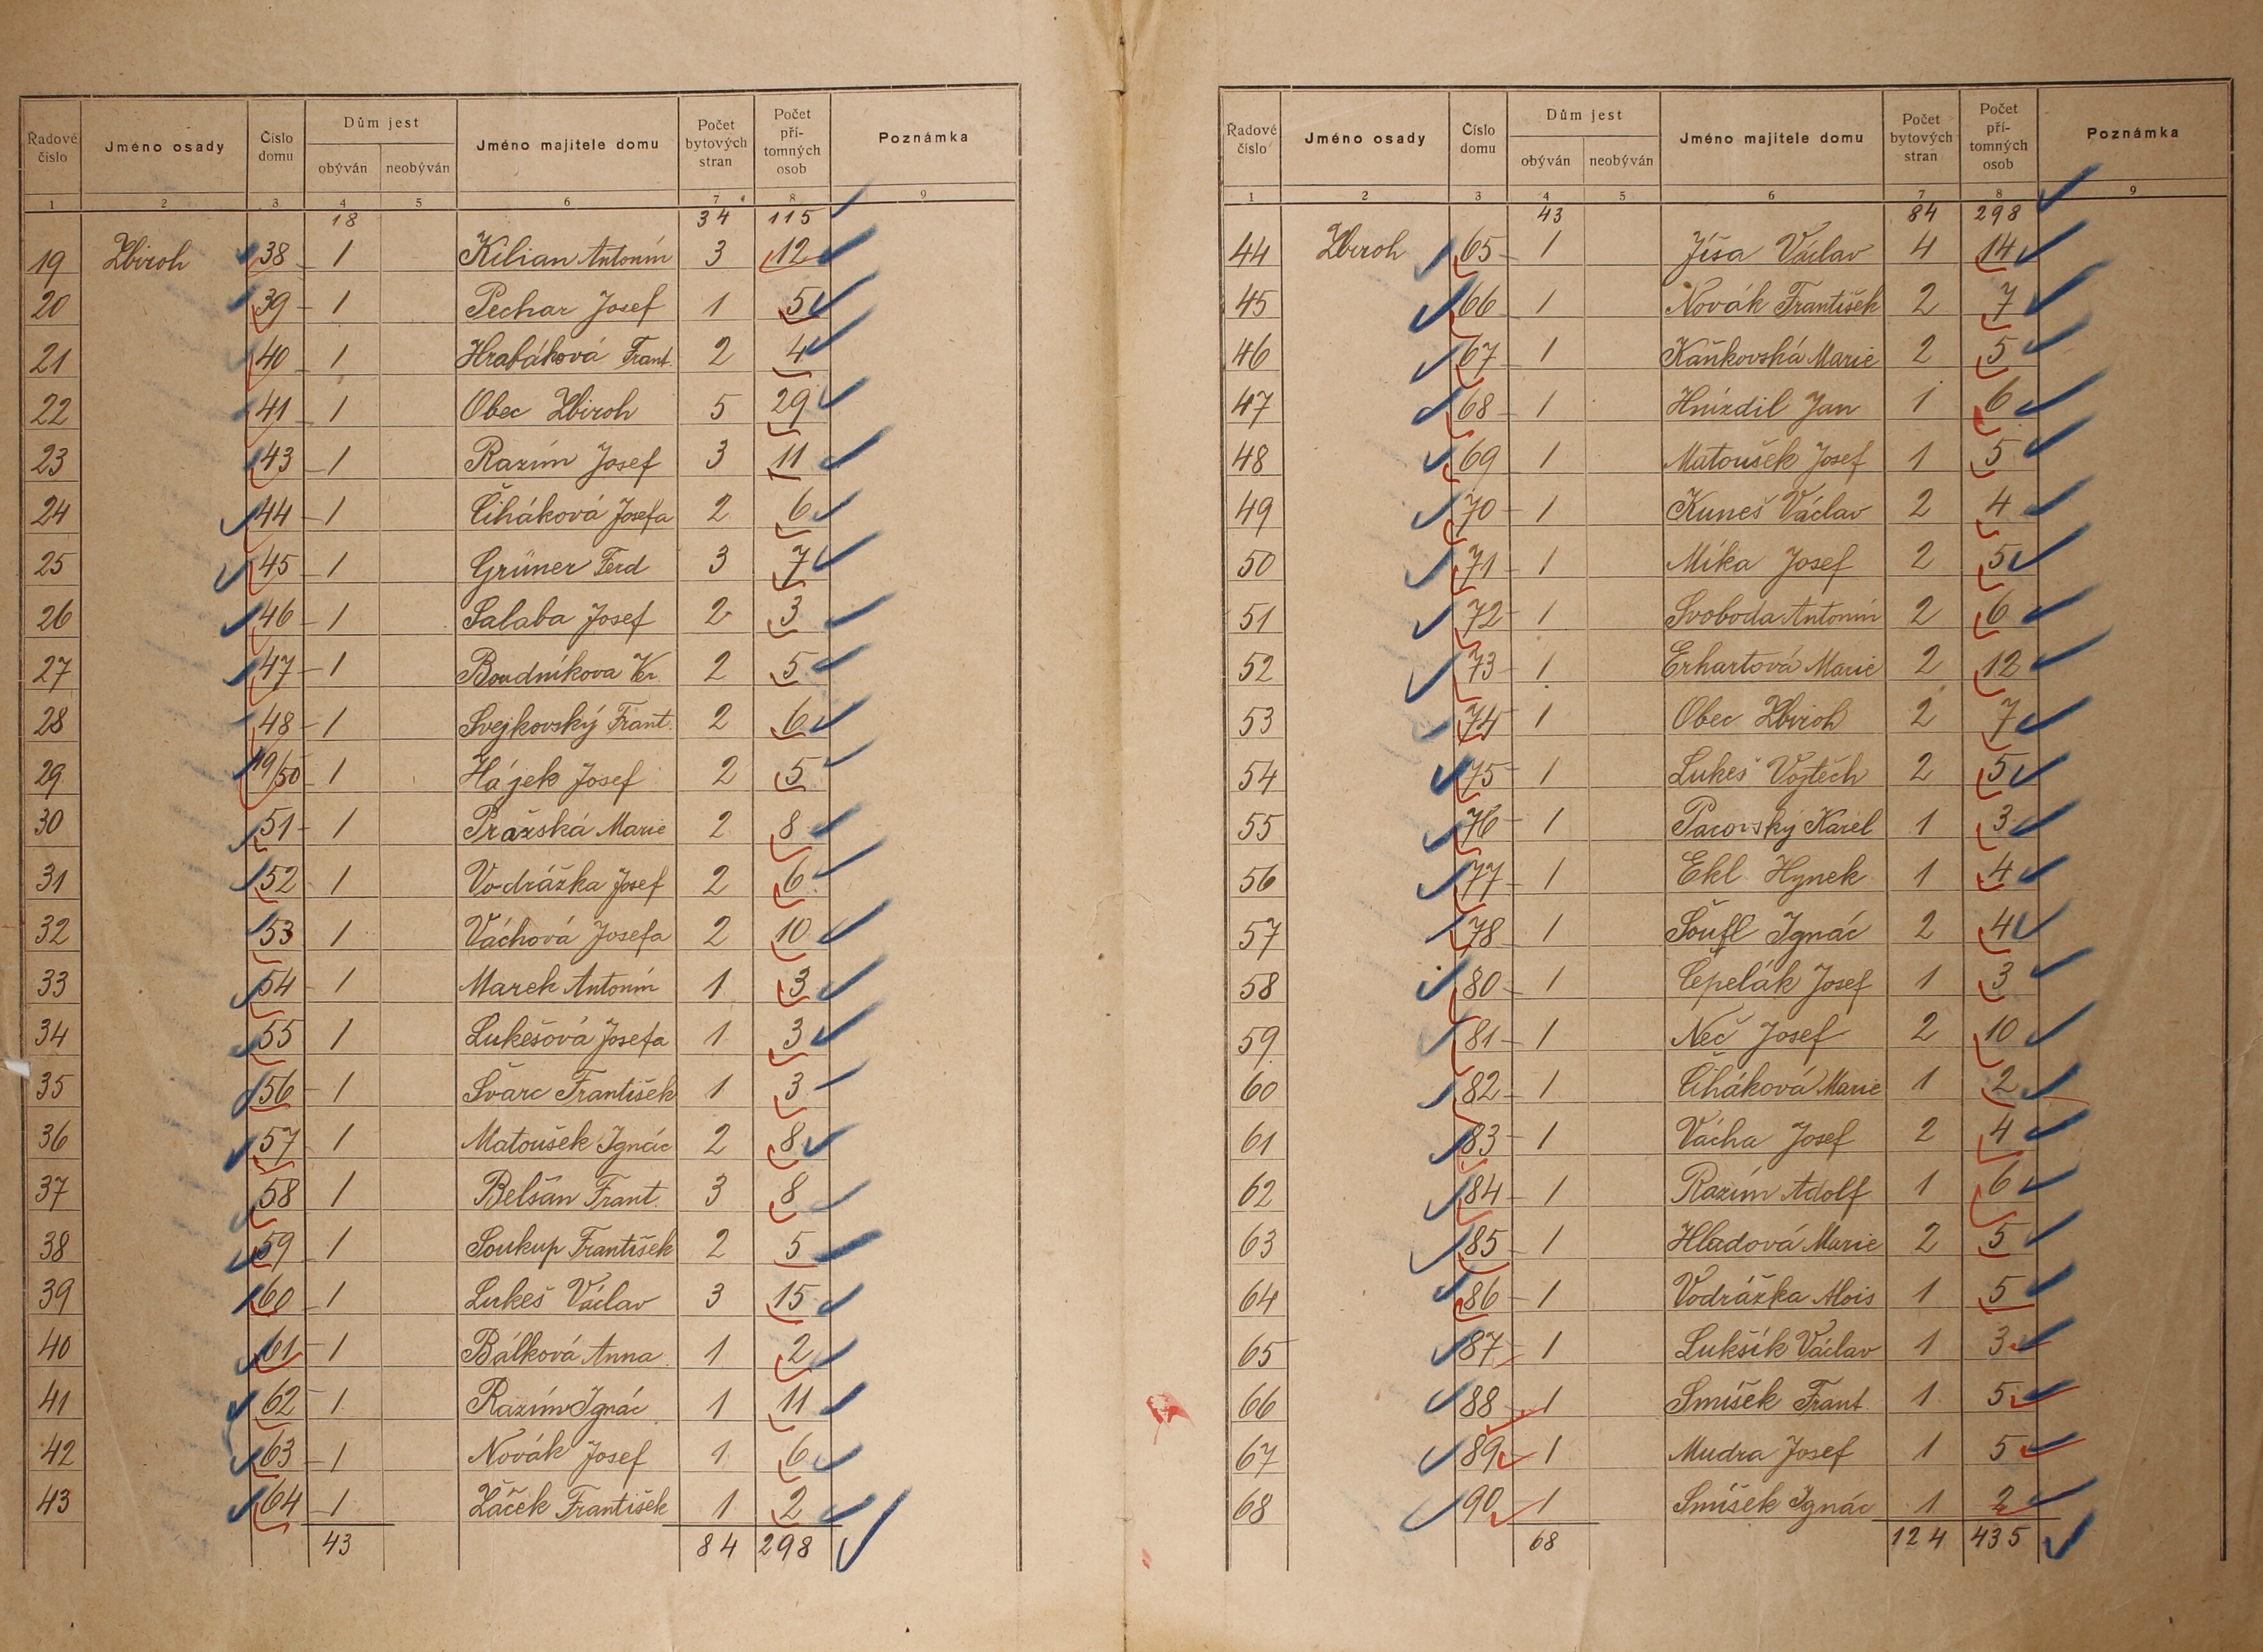 Řadové číslo Jméno osady Číslo domu Dům jest obýván neobýván Jméno majitele domu Počet bytových stran Počet pří-tomných osob Poznámka
1 2 3 4 5 6 7 8 9
18 34 115
19 Zbiroh 38 1 Kilian Antonín 3 12
20 39 1 Pechar Josef 1 5
21 40 1 Hrabáková Frant. 2 4
22 41 1 Obec Zbiroh 5 29
23 43 1 Razím Josef 3 11
24 44 1 Čiháková Josefa 2 6
25 45 1 Grüner Ferd 3 7
26 46 1 Salaba Josef 2 3
27 47 1 Boudníkova Kr. 2 5
28 48 1 Svejkovský Frant. 2 6
29 49/50 1 Hájek Josef 2 5
30 51 1 Pražská Marie 2 8
31 52 1 Vodrážka Josef 2 6
32 53 1 Váchová Josefa 2 10
33 54 1 Marek Antonín 1 3
34 55 1 Lukešová Josefa 1 3
35 56 1 Švarc František 1 3
36 57 1 Matoušek Ignác 2 8
37 58 1 Belšán Frant. 3 8
38 59 1 Soukup František 2 5
39 60 1 Lukeš Václav 3 15
40 61 1 Bálková Anna 1 2
41 62 1 Razím Ignác 1 11
42 63 1 Novák Josef 1 6
43 64 1 Žáček František 1 2
43 84 298
Řadové číslo Jméno osady Číslo domu Dům jest obýván neobýván Jméno majitele domu Počet bytových stran Počet pří-tomných osob Poznámka
1 2 3 4 5 6 7 8 9
43 84 298
44 Zbiroh 65 1 Jíša Václav 4 14
45 66 1 Novák František 2 7
46 67 1 Kaňkovská Marie 2 5
47 68 1 Hnízdil Jan 1 6
48 69 1 Matoušek Josef 1 5
49 70 1 Kuneš Václav 2 4
50 71 1 Míka Josef 2 5
51 72 1 Svoboda Antonín 2 6
52 73 1 Erhartová Marie 2 12
53 74 1 Obec Zbiroh 2 7
54 75 1 Lukeš Vojtěch 2 5
55 76 1 Pacovský Karel 1 3
56 77 1 Ekl Hynek 1 4
57 78 1 Šoufl Ignác 2 4
58 80 1 Čepelák Josef 1 3
59 81 1 Neč Josef 2 10
60 82 1 Čiháková Marie 1 2
61 83 1 Vácha Josef 2 4
62 84 1 Razím Adolf 1 6
63 85 1 Hladová Marie 2 5
64 86 1 Vodrážka Alois 1 5
65 87 1 Lukšík Václav 1 3
66 88 1 Smíšek Frant. 1 5
67 89 1 Mudra Josef 1 5
68 90 1 Smíšek Ignác 1 2
68 124 435